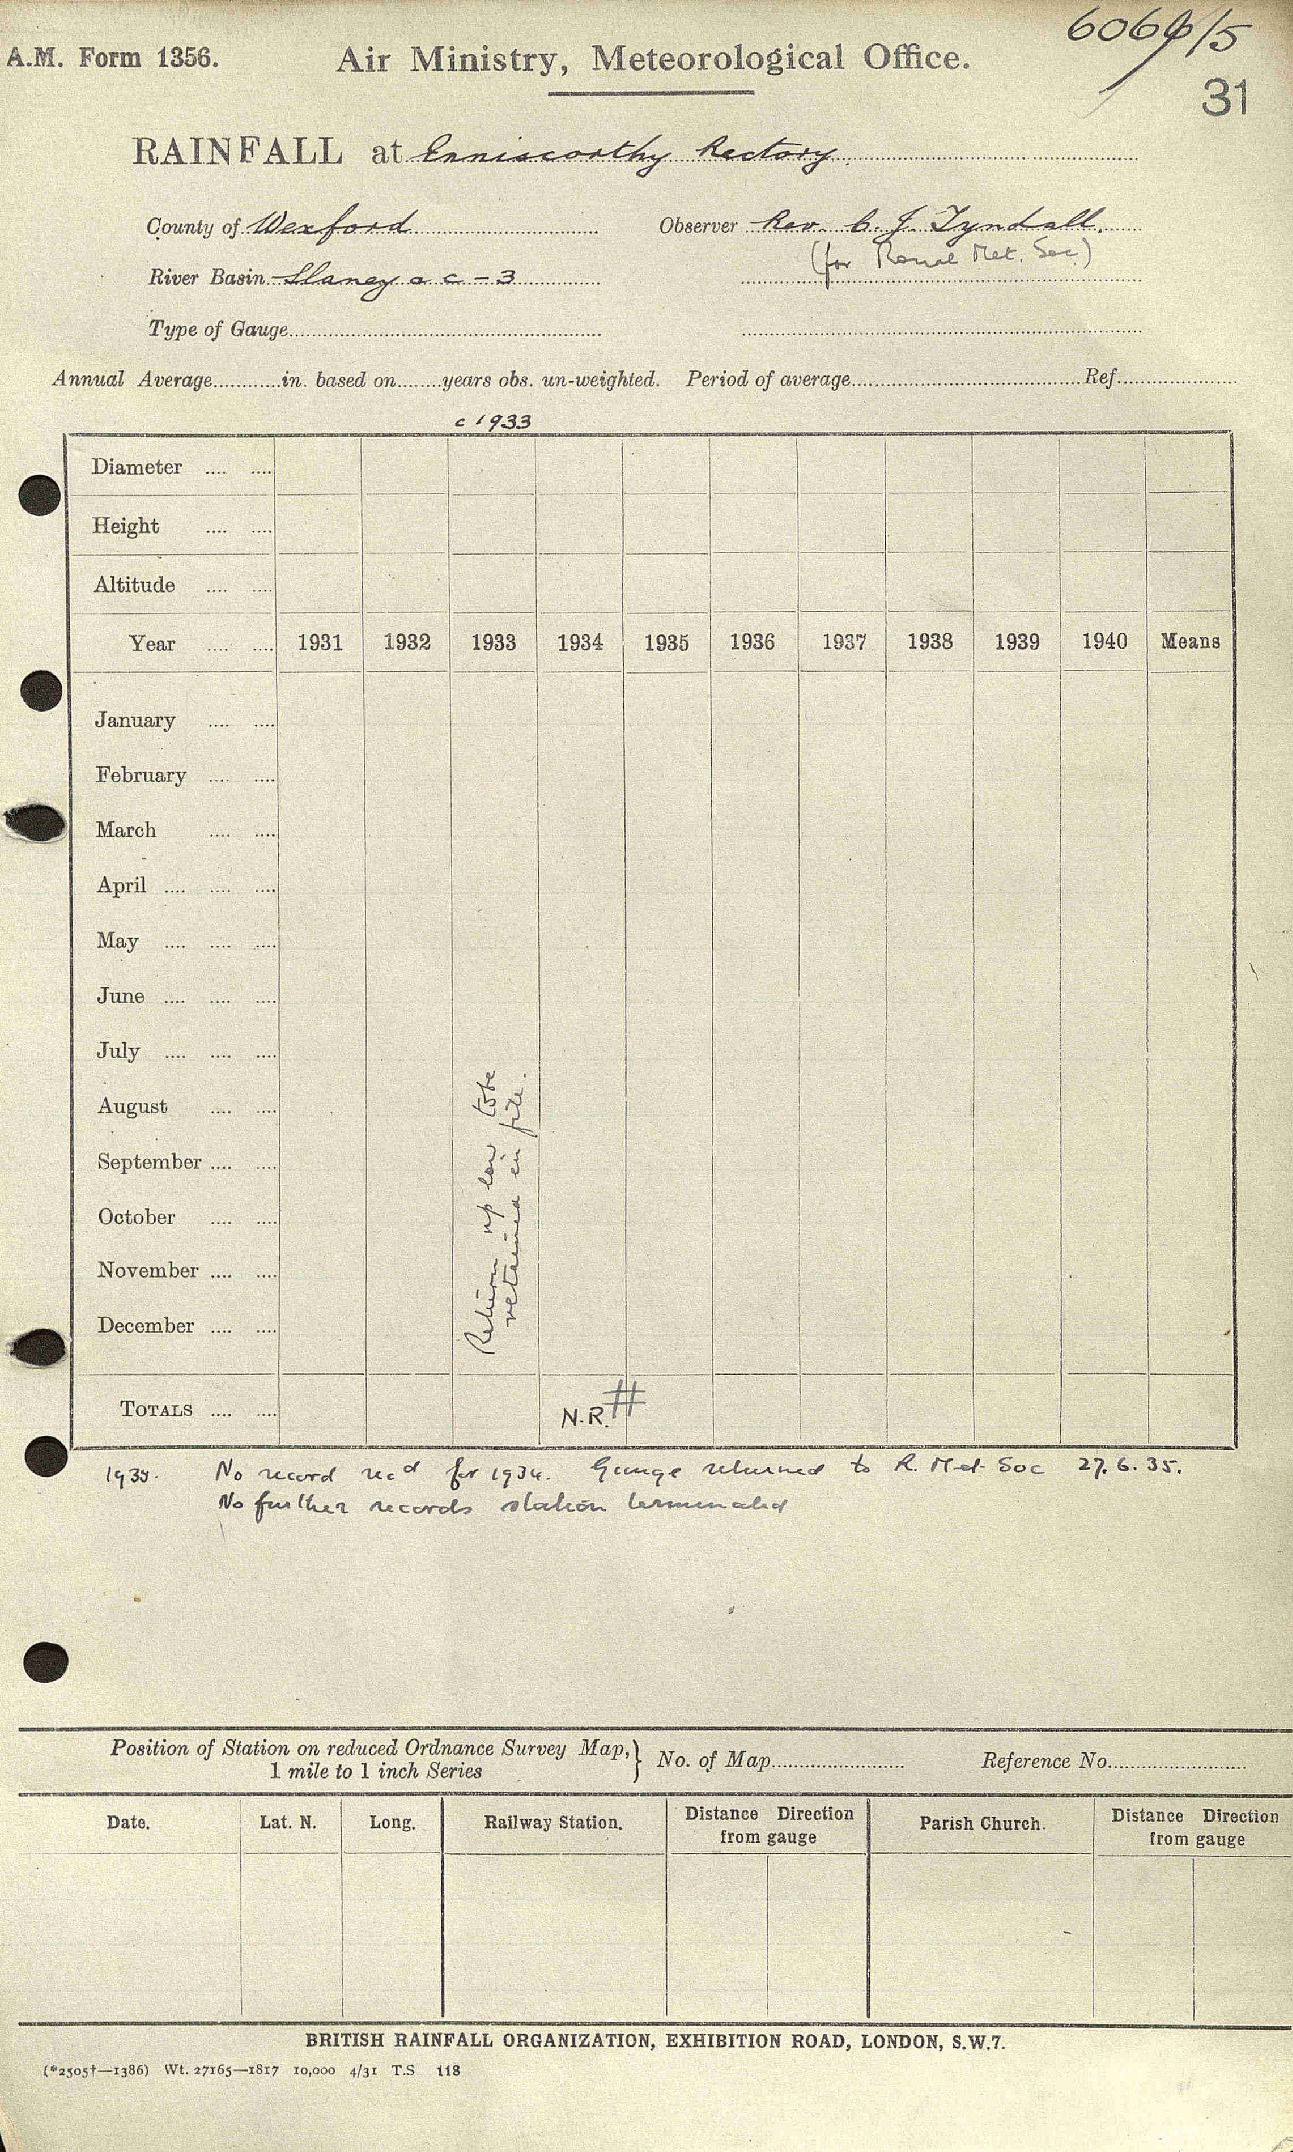 A.M. Form 1356.
Air Ministry, Meteorological Office.
31
RAINFALL at Enniscorthy Rectory.
County of Wexford
Observer Rev. C. J. Tyndall.
(for Royal Met. Soc.)
River Basin Slaney a c - 3
Type of Gauge
Annual Average in. based on years obs. un-weighted. Period of average Ref.
c 1933
Diameter .... ....
Height .... ....
Altitude .... ....
Year .... .... 1931 1932 1933 1934 1935 1936 1937 1938 1939 1940 Means
January .... ....
February .... ....
March .... ....
April .... .... ....
May .... .... ....
June .... .... ....
July .... .... ....
August .... ....
September .... ....
October .... ....
November .... ....
December .... ....
Return up low to be
retained in file.
TOTALS .... .... N.R. #
1935. No record recd for 1934. Gauge returned to R. Met. Soc 27.6.35.
No further records station terminated
Position of Station on reduced Ordnance Survey Map,
1 mile to 1 inch Series
} No. of Map Reference No.
Date. Lat. N. Long. Railway Station. Distance Direction from gauge Parish Church. Distance Direction from gauge
BRITISH RAINFALL ORGANIZATION, EXHIBITION ROAD, LONDON, S.W.7.
(*2505†—1386) Wt. 27165—1817 10,000 4/31 T.S 118